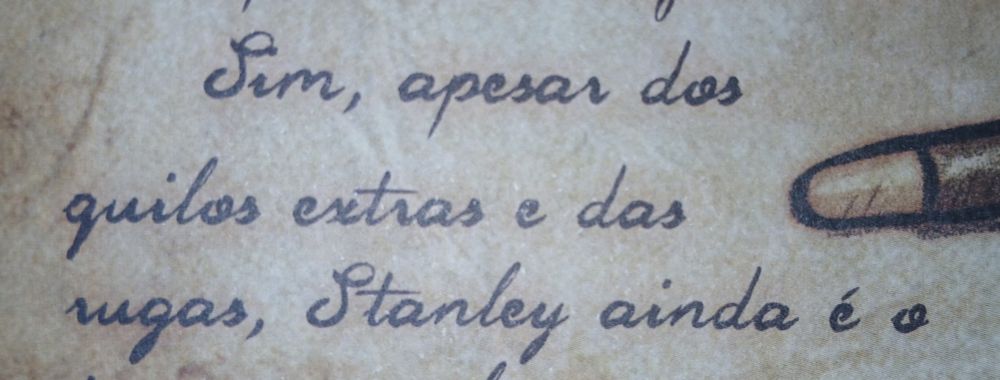 Sim, apesar dos
quilos extras e das
rugas, Stanley ainda é o